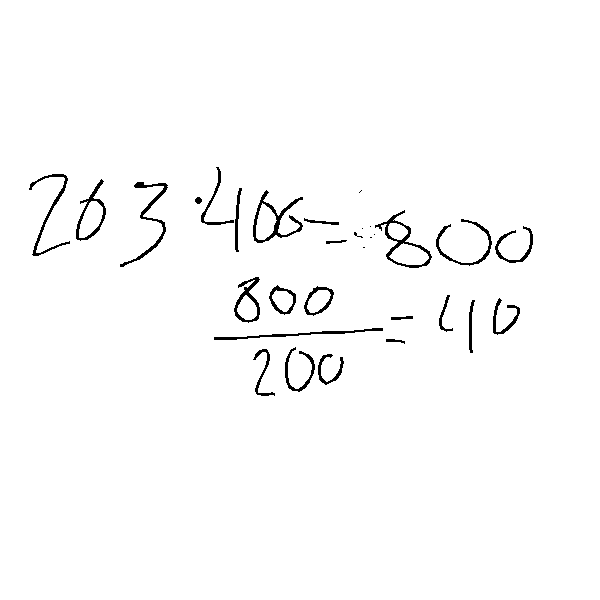 203 · 400 = 800
800 / 200 = 40